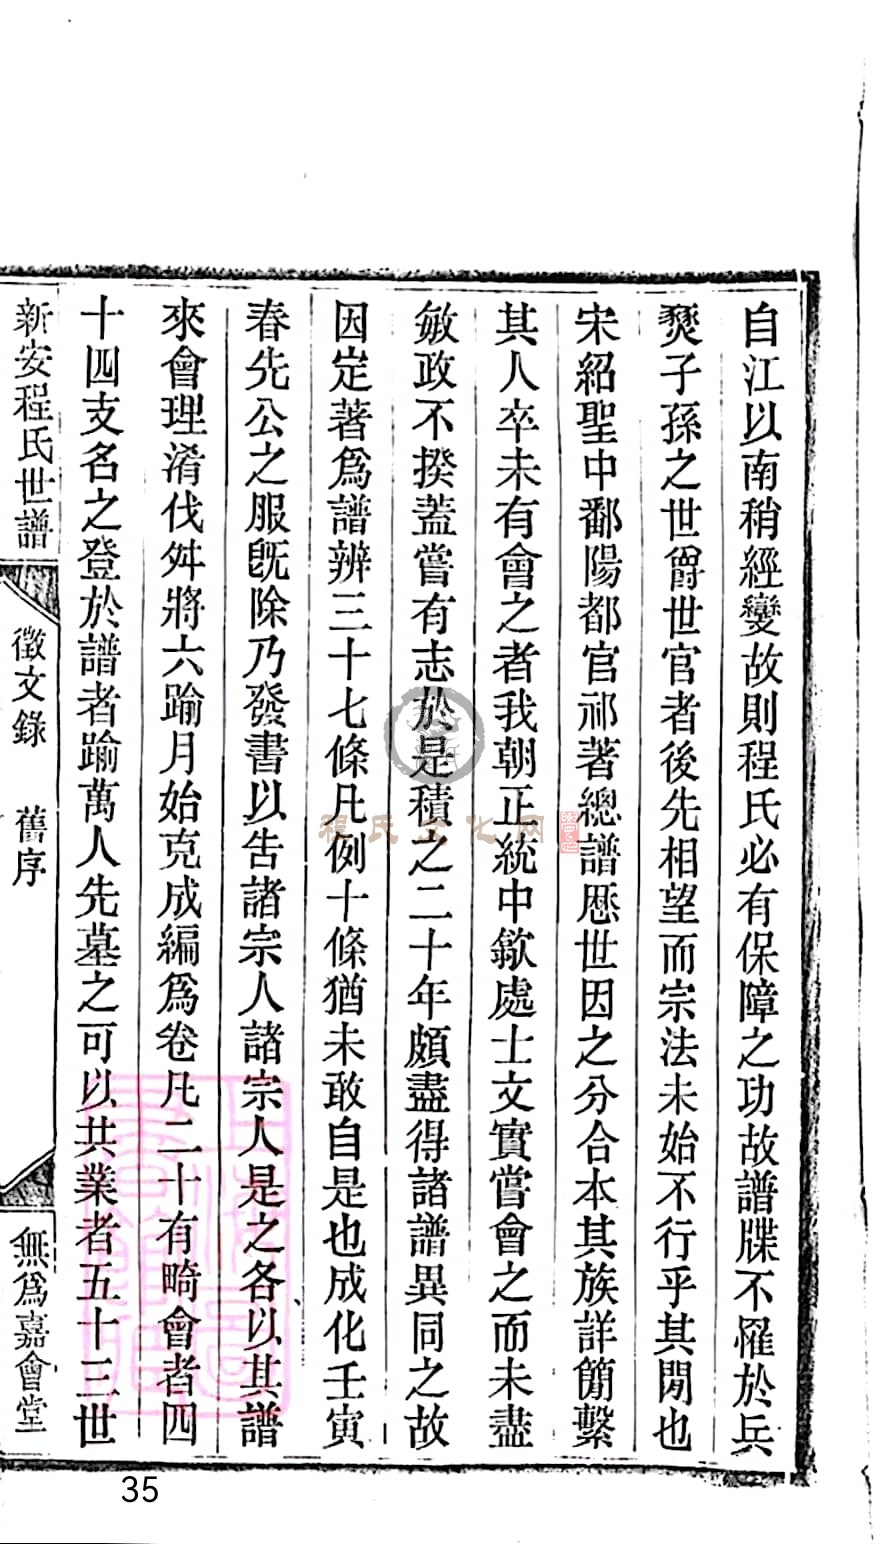 自江以南稍經變故則程氏必有保障之功故譜牒不罹於兵
燹子孫之世爵世官者後先相望而宗法未始不行乎其閒也
宋紹聖中鄱陽都官祁著總譜厯世因之分合本其族詳簡繫
其人卒未有會之者我朝正統中歙處士文實嘗會之而未盡
敏政不揆蓋嘗有志於是積之二十年頗盡得諸譜異同之故
因定著爲譜辨三十七條凡例十條猶未敢自是也成化壬寅
春先公之服旣除乃發書以告諸宗人諸宗人是之各以其譜
來會理淆伐舛將六踰月始克成編爲卷凡二十有畸會者四
十四支名之登於譜者踰萬人先墓之可以共業者五十三世
新安程氏世譜
徵文錄 舊序
無爲嘉會堂
程氏文化网
35